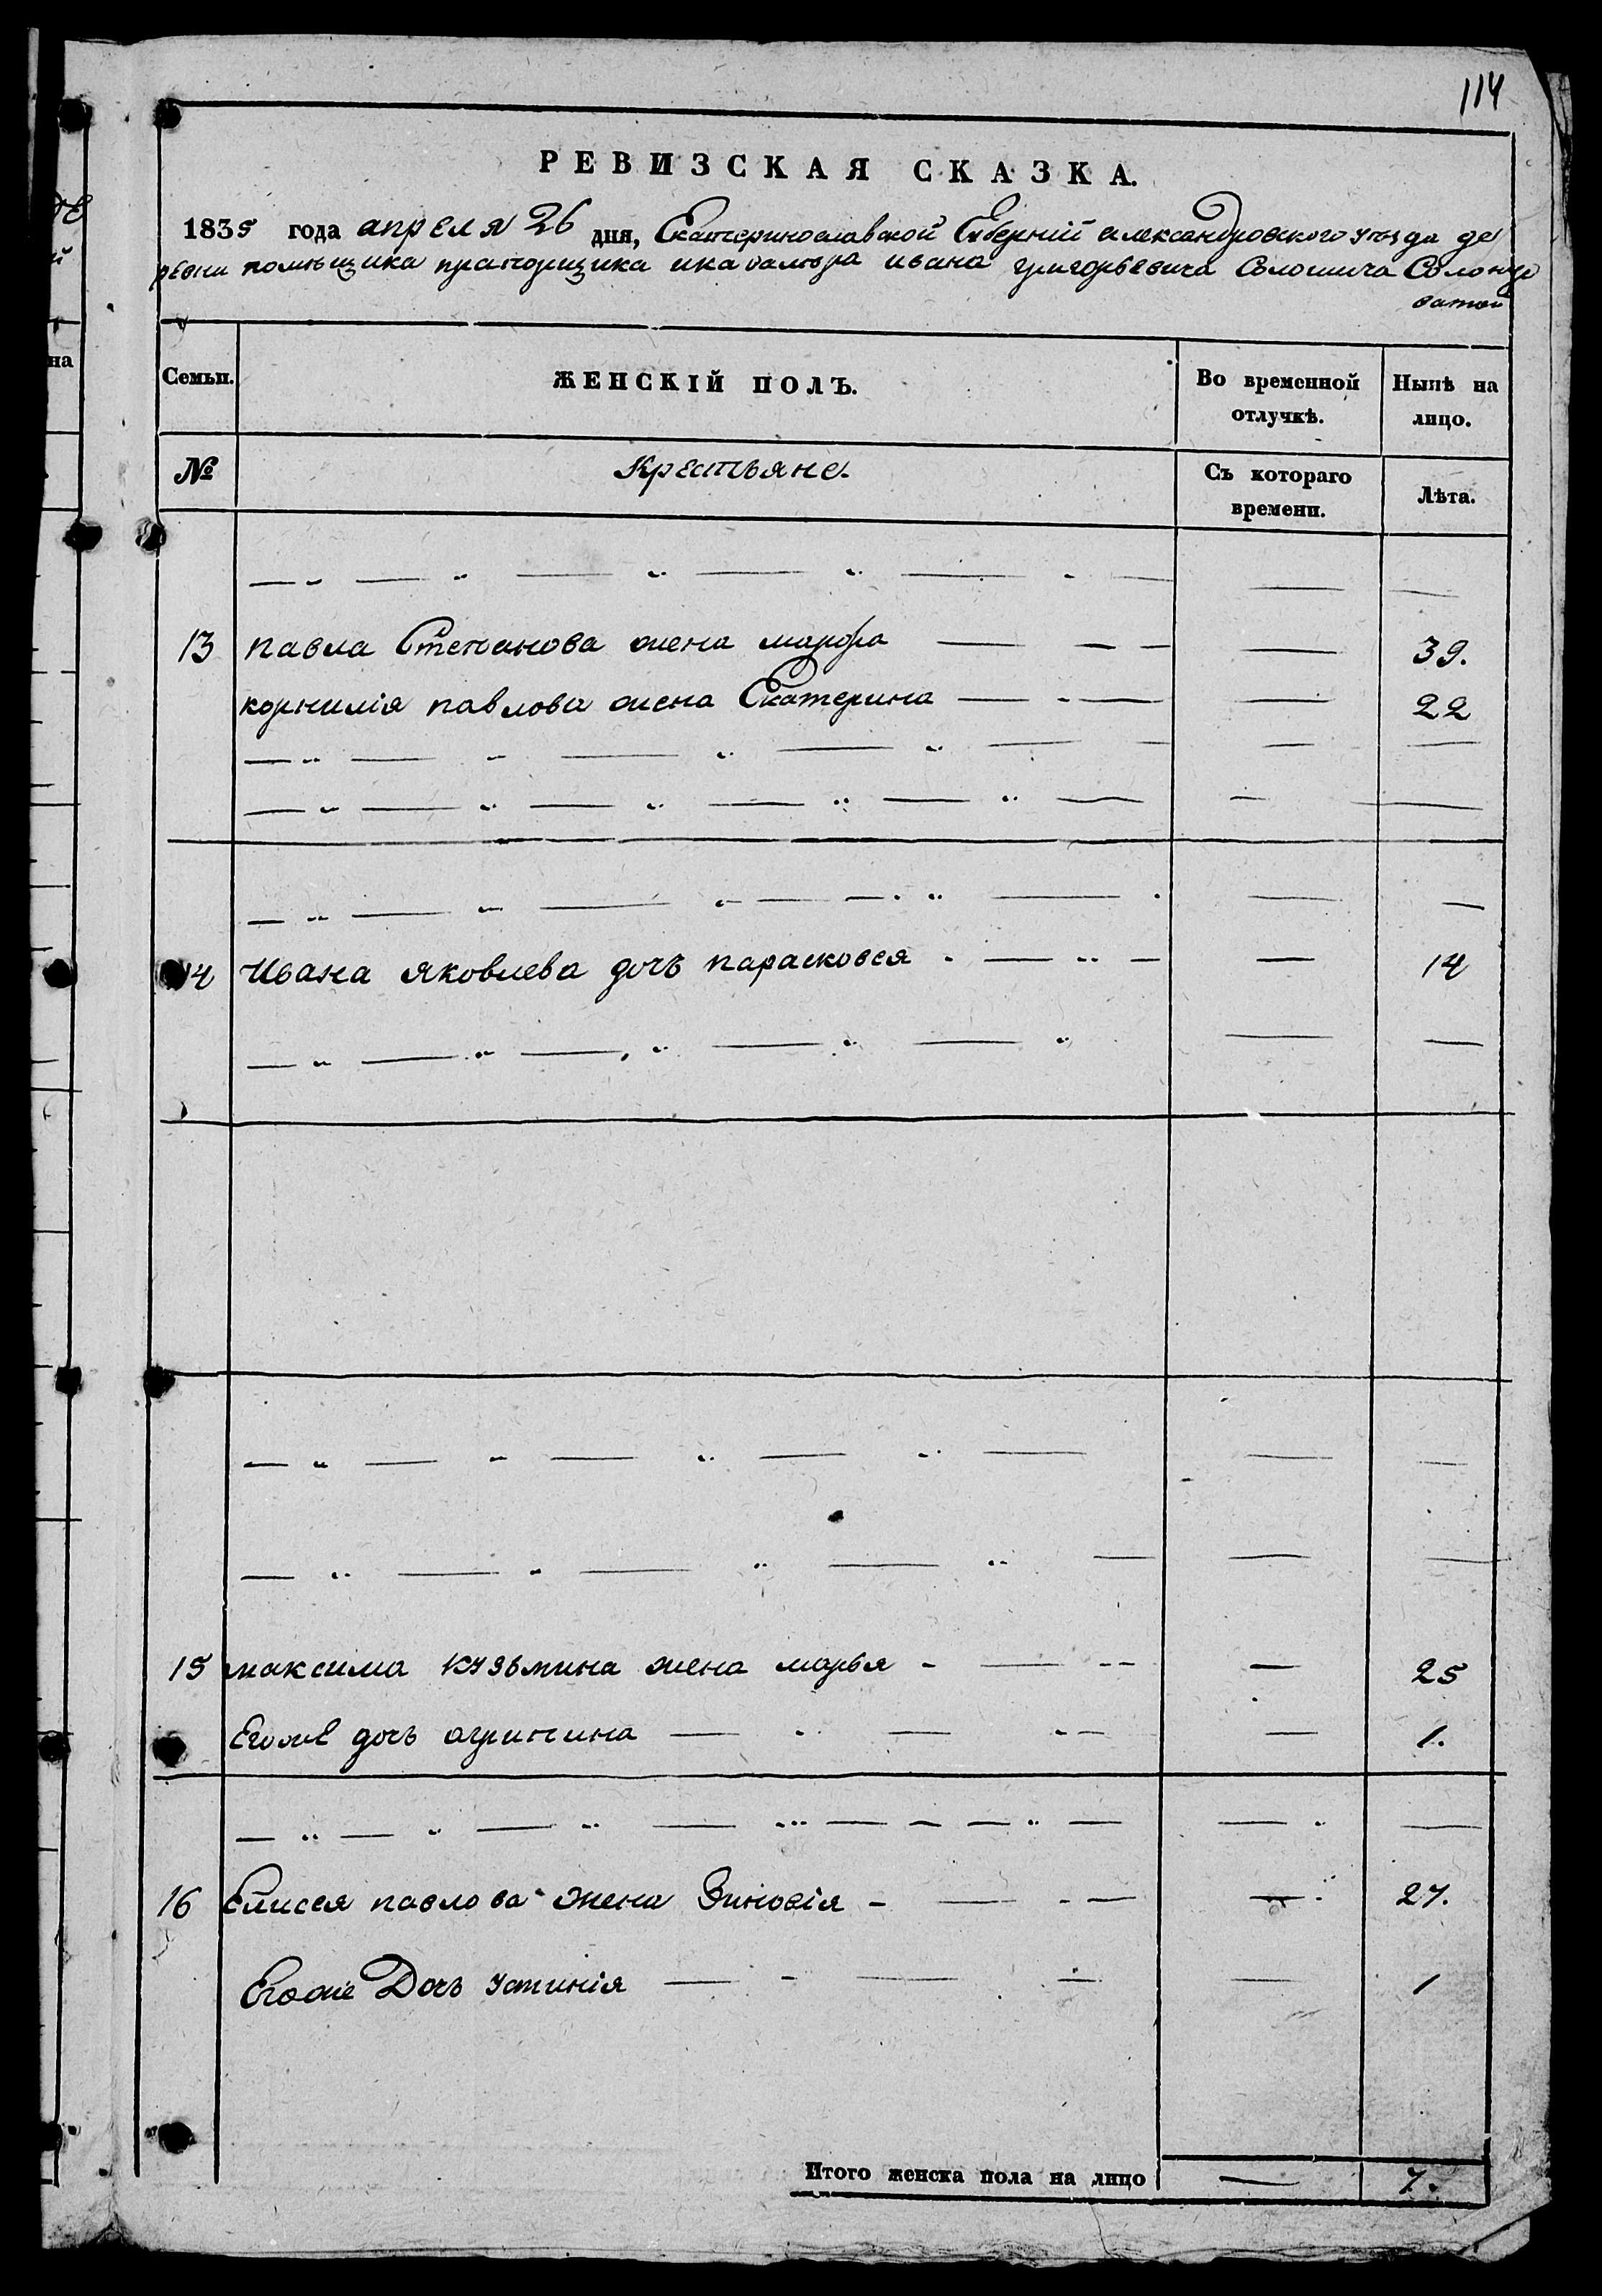 114
РЕВИЗСКАЯ СКАЗКА.
1835 года апреля 26 дня, Екатеринославской Губерніи александровского уезда де
ревни помѣщика прапорщика ивана григорьевича Солонцо
ватой
Семьи. ЖЕНСКІЙ ПОЛЪ. Во временной отлучкѣ. Нынѣ на лицо.
№ Крестьяне. Съ котораго времени. Лѣта.
13 павла Степанова жена марфа 39.
корнилія павлова жена Екатерина 22
14 Ивана яковлева дочь парасковея 14
15 максима кузьмина жена марья 25
Егоже дочь агрипина 1.
16 Елисея павлова жена Зиновія 27.
Егоже Дочь устинія 1
Итого женска пола на лицо 7.